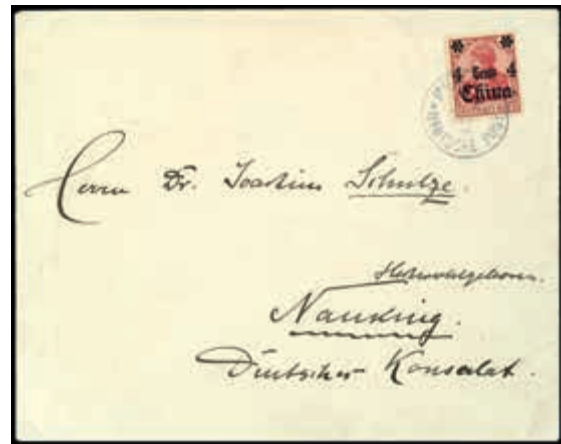 4 Cents 4
China
Herrn Dr. Joachim Schultze.
Hochwohlgeboren.
Nanking.
Deutsches Konsulat.